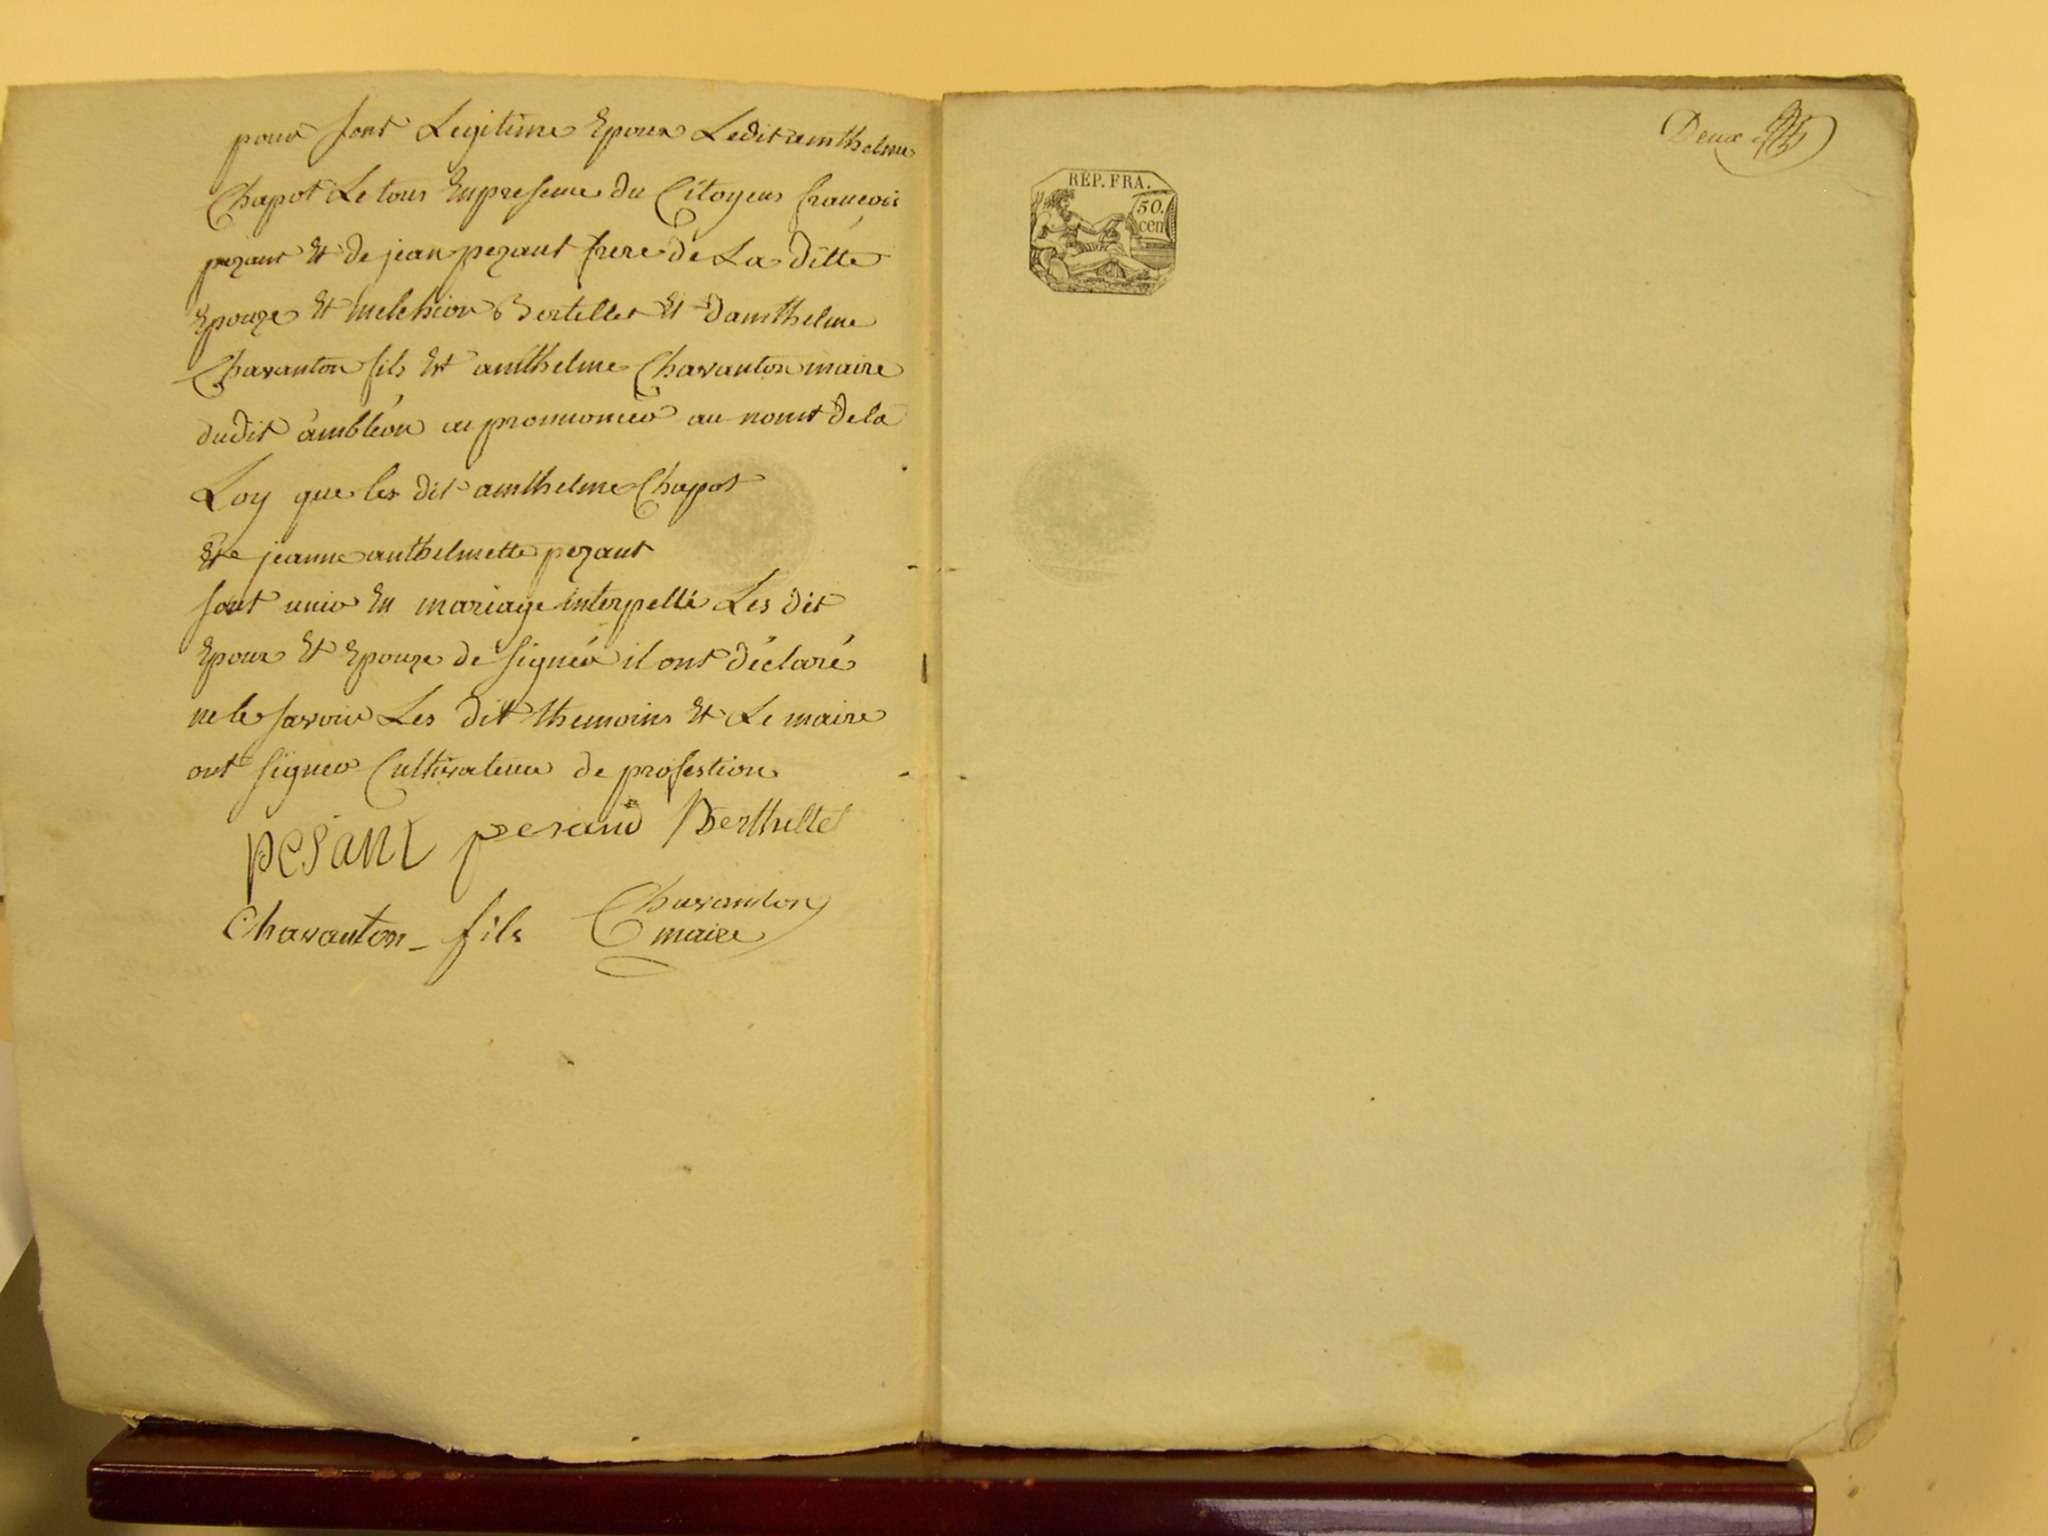 pour sont Legitime Epoux Ledit amthelme
Chapot Le tous En presence du Citoyens francois
pezant Et de jean pezant frere de La ditte
Epouze Et melchior Bertellet Et damthelme
Chavanton fils Et amthelme Chavanton maire
dudit ambléon a prononcé au nomt de la
Loy que les dit amthelme Chapot
Et jeanne anthelmette pezant
sont unis En mariage interpellé Les dit
Epoux Et Epouze de signér il ont déclaré
ne le savoir Les dit themoins Et Le maire
ont signer Cultivateur de profestion
pesant pesand Berthellet
Chavanton fils Chavanton
maire
Deux
REP. FRA.
50.
cen